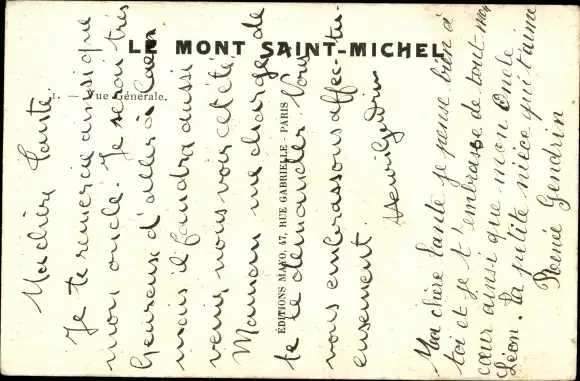 LE MONT SAINT-MICHEL
1. Vue Générale.
ÉDITIONS MAYO, 47, RUE GABRIELLE - PARIS
Ma chère Tante
Je te remercie ainsi que
mon oncle. Je serai très
heureuse d'aller à Caen
mais il faudra aussi
venir nous voir cet été,
Maman me charge de
te le demander. Nous
vous embrassons affectu-
eusement
Henri Gendrin
Ma chère tante je pense bien à
toi et je t'embrasse de tout mon
cœur ainsi que mon Oncle
Léon. ta petite nièce qui t'aime
Renée Gendrin